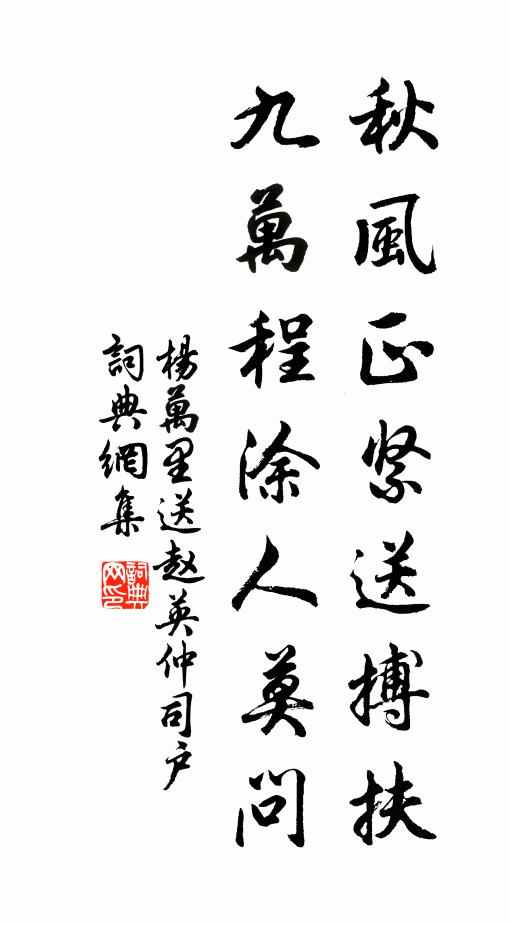 秋風正緊送搏扶
九萬程涂人莫問
楊萬里送赵英仲司户
詞典網集
詞典网印